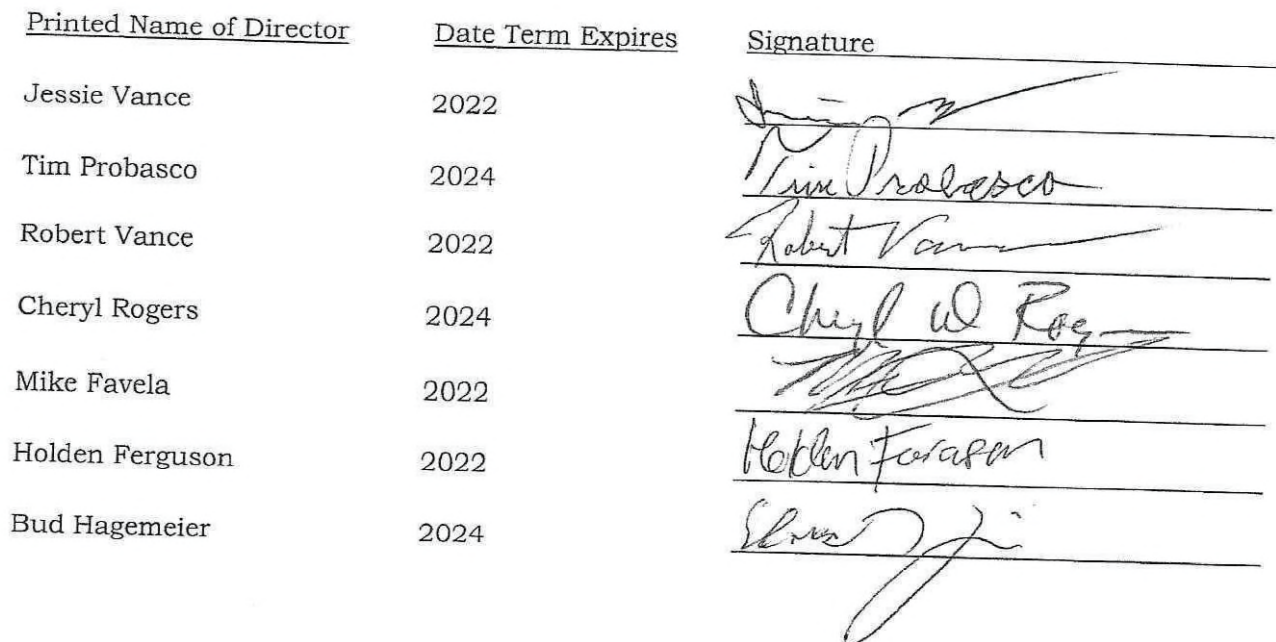 Printed Name of Director Date Term Expires Signature
Jessie Vance 2022
Tim Probasco 2024 Tim Probasco
Robert Vance 2022 Robert Vance
Cheryl Rogers 2024 Cheryl W Rog
Mike Favela 2022
Holden Ferguson 2022 Holden
Bud Hagemeier 2024